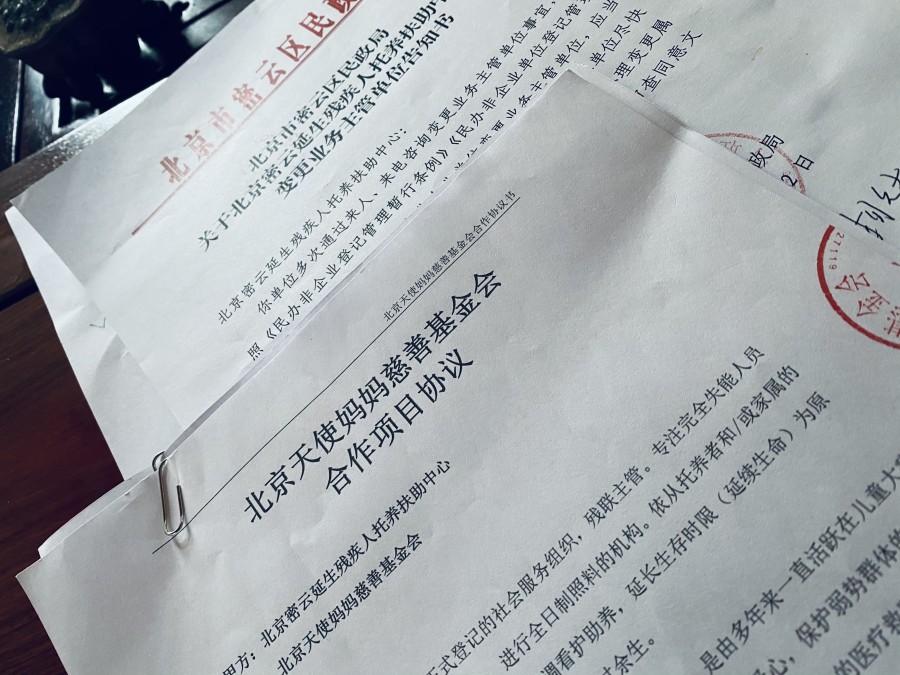 北京市密云区民政
北京市密云区民政局
关于北京密云延生残疾人托养扶助中
变更业务主管单位告知书
北京密云延生残疾人托养扶助中心:
你单位多次通过来人、来电咨询变更业务主管单位事宜,
照《民办非企业登记管理暂行条例》《民办非企业单位登记管理
业务主管单位,应当
单位尽快
理变更属
查同意文
政局
2日
北京天使妈妈慈善基金会合作协议书
北京天使妈妈慈善基金会
合作项目协议
甲方:北京密云延生残疾人托养扶助中心
北京天使妈妈慈善基金会
正式登记的社会服务组织,残联主管。专注完全失能人员
进行全日制照料的机构。依从托养者和/或家属的
调看护助养,延长生存时限(延续生命)为原
过余生。
是由多年来一直活跃在儿童大
心,保护弱势群体的
的医疗救
金会
27119